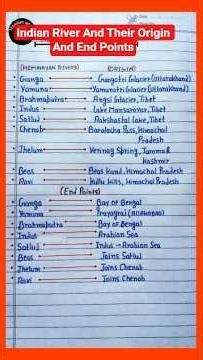 Indian River And Their Origin
And End Points
(HIMALAYAN RIVERS) ORIGIN)
Ganga Gangotri Glacier (Uttarakhand)
Yamuna Yamunotri Glacier (Uttarakhand)
Brahmaputra Angsi Glacier, Tibet
Indus Lake Mansarovar, Tibet
Satluj Rakshastal Lake, Tibet
Chenab Baralacha Pass, Himachal
Pradesh
Jhelum Verinag Spring, Jammu &
Kashmir
Beas Beas Kund, Himachal Pradesh
Ravi Kullu Hills, Himachal Pradesh
(End Points)
Ganga Bay of Bengal
Yamuna Prayagraj (Allahabad)
Brahmaputra Bay of Bengal
Indus Arabian Sea
Satluj Indus → Arabian Sea
Beas Joins Satluj
Jhelum Joins Chenab
Ravi Joins Chenab